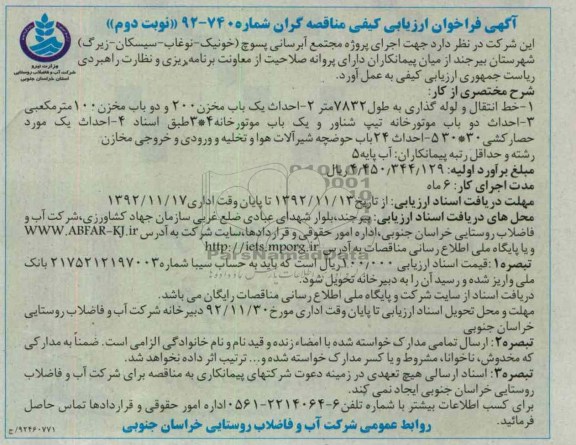 آگهی فراخوان ارزیابی کیفی مناقصه گران شماره ۷۴۰-۹۲ «(نوبت دوم»
وزارت نیرو
شرکت آب و فاضلاب روستایی
استان خراسان جنوبی
این شرکت در نظر دارد جهت اجرای پروژه مجتمع آبرسانی پسوچ (خونیک-نوغاب-سیسکان-زیرگ)
شهرستان بیرجند از میان پیمانکاران دارای پروانه صلاحیت از معاونت برنامه ریزی و نظارت راهبردی
ریاست جمهوری ارزیابی کیفی به عمل آورد.
شرح مختصری از کار:
۱-خط انتقال و لوله گذاری به طول۷۸۳۲متر ۲-احداث یک باب مخزن۲۰۰ و دو باب مخزن۱۰۰مترمکعبی
۳-احداث دو باب موتورخانه تیپ شناور و یک باب موتورخانه۴*۳طبق اسناد ۴-احداث یک مورد
حصارکشی۳۰*۳۰ ۵-احداث ۲۴باب حوضچه شیرآلات هوا و تخلیه و ورودی و خروجی مخازن.
رشته و حداقل رتبه پیمانکاران: آب پایه۵
مبلغ برآورد اولیه: ۴/۴۵۰/۳۴۴/۱۲۹ریال
مدت اجرای کار: ۶ ماه
مهلت دریافت اسناد ارزیابی: از تاریخ۱۳۹۲/۱۱/۱۳ تا پایان وقت اداری۱۳۹۲/۱۱/۱۷
محل های دریافت اسناد ارزیابی: بیرجند،بلوار شهدای عبادی ضلع غربی سازمان جهاد کشاورزی،شرکت آب و
فاضلاب روستایی خراسان جنوبی،اداره امور حقوقی و قراردادها،سایت شرکت به آدرس WWW.ABFAR-KJ.ir
و یا پایگاه ملی اطلاع رسانی مناقصات به آدرس http://iets.mporg.ir
تبصره۱: قیمت اسناد ارزیابی ۱۰۰/۰۰۰ریال است که باید به حساب سیبا شماره۲۱۷۵۲۱۲۱۹۷۰۰۳ بانک
ملی واریز شده و رسید آن را به دبیرخانه تحویل شود.
دریافت اسناد از سایت شرکت و پایگاه ملی اطلاع رسانی مناقصات رایگان می باشد.
مهلت و محل تحویل اسناد ارزیابی تا پایان وقت اداری مورخ ۹۲/۱۱/۳۰ دبیرخانه شرکت آب و فاضلاب روستایی
خراسان جنوبی
تبصره۲: ارسال تمامی مدارک خواسته شده با امضاء زنده و قید نام و نام خانوادگی الزامی است. ضمناً به مدارکی
که مخدوش، ناخوانا، مشروط و یا کسر مدارک خواسته شده و... ترتیب اثر داده نخواهد شد.
تبصره۳: اسناد ارسالی هیچ تعهدی در زمینه دعوت شرکتهای پیمانکاری به مناقصه برای شرکت آب و فاضلاب
روستایی خراسان جنوبی ایجاد نمی کند.
برای کسب اطلاعات بیشتر با شماره تلفن ۶-۲۲۱۴۰۶۴-۰۵۶۱ اداره امور حقوقی و قراردادها تماس حاصل
فرمائید.
روابط عمومی شرکت آب و فاضلاب روستایی خراسان جنوبی
۹۲۴۶۰۷۷۱/ج